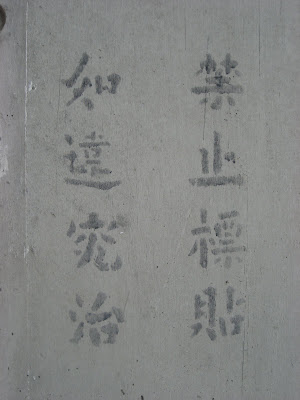 禁止標貼
如違究治